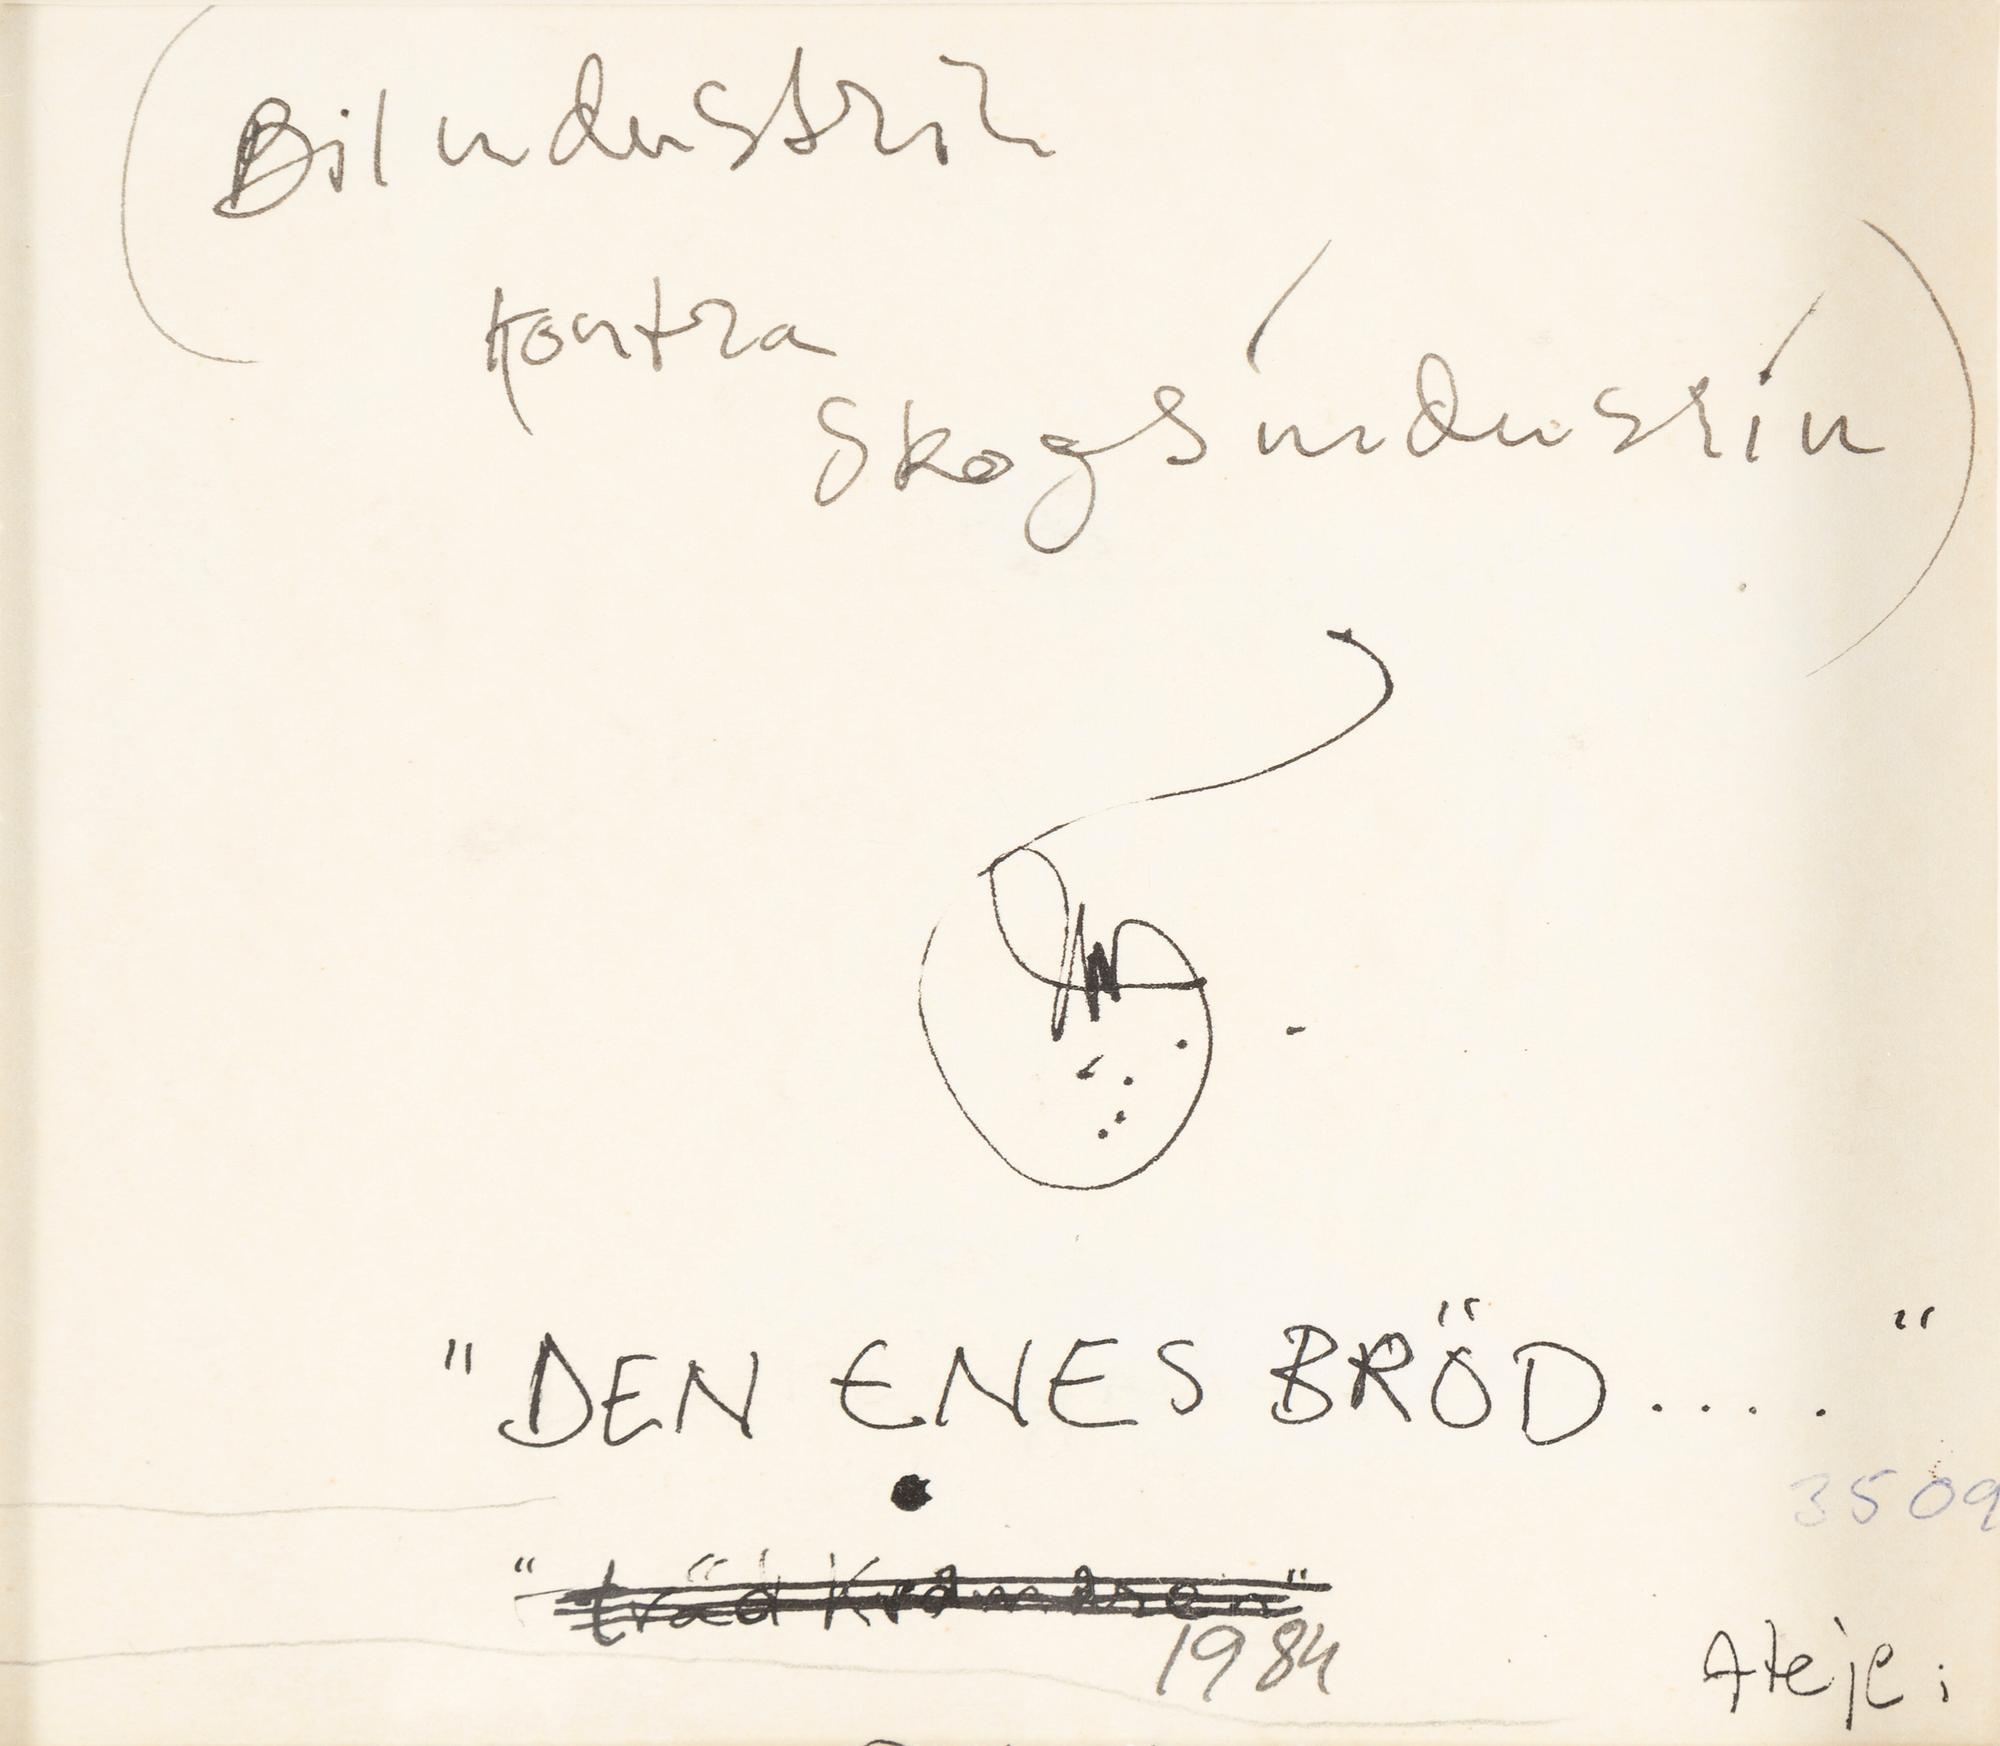 (Bilindustrin
kontra
Skogsindustrin)
"DEN ENES BRÖD....."
3509
"träd Kramaren"
1984